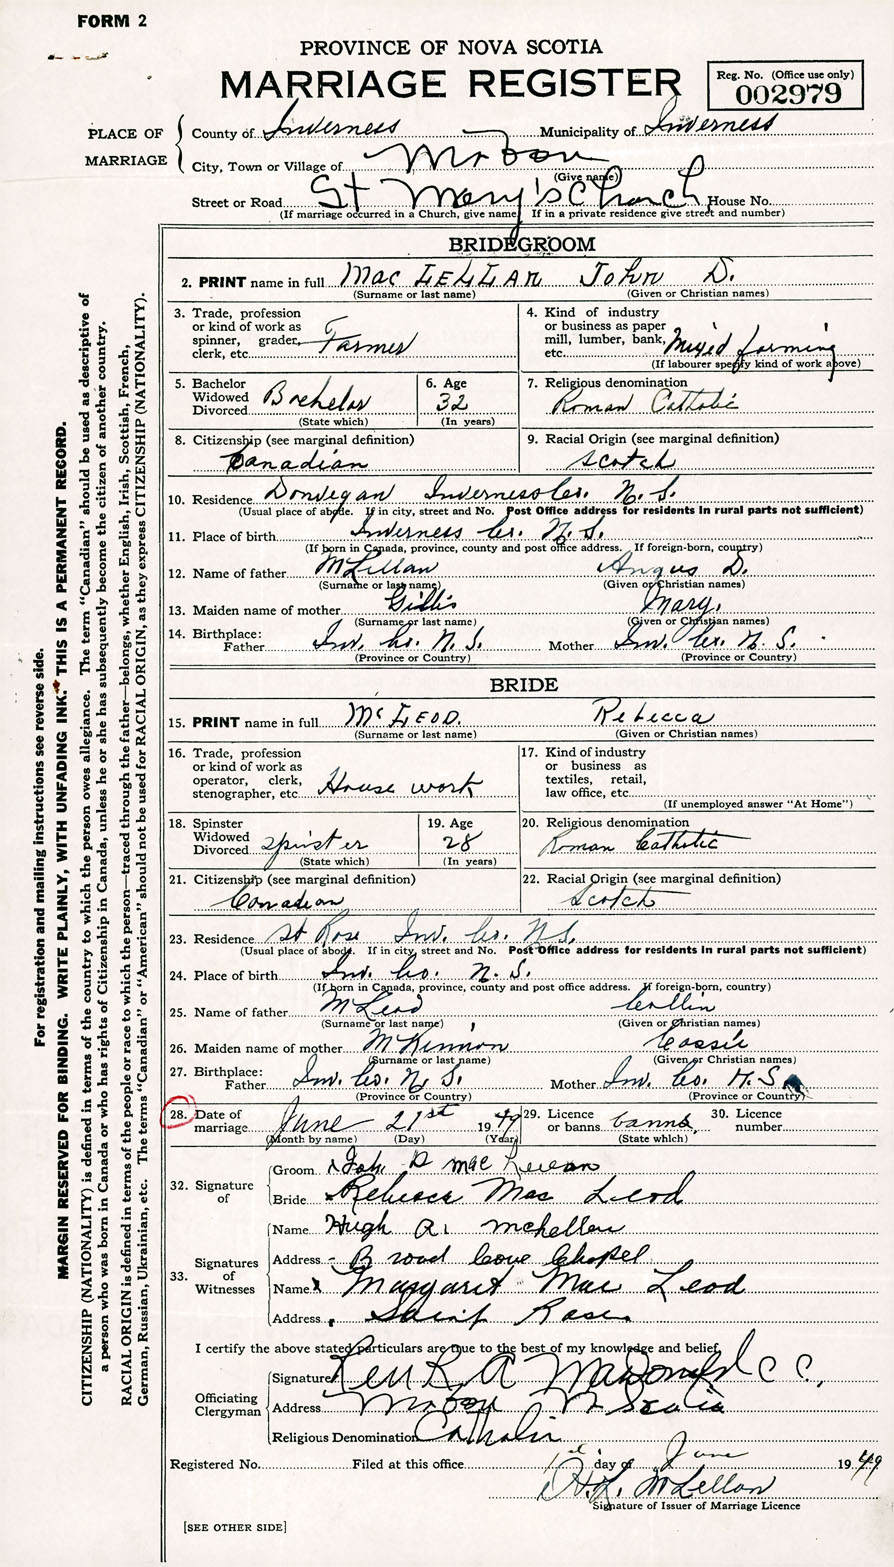 FORM 2
PROVINCE OF NOVA SCOTIA
MARRIAGE REGISTER
Reg. No. (Office use only)
002979
PLACE OF MARRIAGE
County of Inverness Municipality of Inverness
City, Town or Village of Mabou
(Give name)
Street or Road St Mary's Church House No.
(If marriage occurred in a Church, give name If in a private residence give street and number)
BRIDEGROOM
2. PRINT name in full Mac LELLAN John D.
(Surname or last name) (Given or Christian names)
3. Trade, profession or kind of work as spinner, grader, clerk, etc. Farmer
4. Kind of industry or business as paper mill, lumber, bank, etc. Mixed farming
(If labourer specify kind of work above)
5. Bachelor Widowed Divorced Bachelor
(State which)
6. Age 32
(In years)
7. Religious denomination
Roman Catholic
8. Citizenship (see marginal definition)
Canadian
9. Racial Origin (see marginal definition)
Scotch
10. Residence Dunvegan Inverness Co. N. S.
(Usual place of abode. If in city, street and No. Post Office address for residents in rural parts not sufficient)
11. Place of birth Inverness Co. N. S.
(If born in Canada, province, county and post office address. If foreign-born, country)
12. Name of father McLellan Angus D.
(Surname or last name) (Given or Christian names)
13. Maiden name of mother Gillis Mary.
(Surname or last name) (Given or Christian names)
14. Birthplace:
Father Inv. Co. N. S. Mother Inv. Co. N. S.
(Province or Country) (Province or Country)
BRIDE
15. PRINT name in full McLEOD. Rebecca
(Surname or last name) (Given or Christian names)
16. Trade, profession or kind of work as operator, clerk, stenographer, etc. House work
17. Kind of industry or business as textiles, retail, law office, etc.
(If unemployed answer "At Home")
18. Spinster Widowed Divorced Spinster
(State which)
19. Age 28
(In years)
20. Religious denomination
Roman Catholic
21. Citizenship (see marginal definition)
Canadian
22. Racial Origin (see marginal definition)
Scotch
23. Residence St Rose Inv. Co. N.S.
(Usual place of abode. If in city, street and No. Post Office address for residents in rural parts not sufficient)
24. Place of birth Inv. Co. N. S.
(If born in Canada, province, county and post office address. If foreign-born, country)
25. Name of father McLeod Collin
(Surname or last name) (Given or Christian names)
26. Maiden name of mother McKinnon Cassie
(Surname or last name) (Given or Christian names)
27. Birthplace:
Father Inv. Co. N. S. Mother Inv. Co. N. S
(Province or Country) (Province or Country)
28. Date of marriage June 21st 1949
(Month by name) (Day) (Year)
29. Licence or banns banns
(State which)
30. Licence number
32. Signature of
Groom John D Mac
Bride Rebecca Mac Leod
33. Signatures of Witnesses
Name Hugh A. McLellan
Address Broad Cove Chapel
Name Margaret Mac Leod
Address Saint Rose
I certify the above stated particulars are true to the best of my knowledge and belief.
Officiating Clergyman
Signature Rev R A MacDonald C C,
Address Mabou N Scotia
Religious Denomination Catholic
Registered No. Filed at this office day of June 1949
McLellan
Signature of Issuer of Marriage Licence
[SEE OTHER SIDE]
For registration and mailing instructions see reverse side.
MARGIN RESERVED FOR BINDING. WRITE PLAINLY, WITH UNFADING INK. THIS IS A PERMANENT RECORD.
CITIZENSHIP (NATIONALITY) is defined in terms of the country to which the person owes allegiance. The term "Canadian" should be used as descriptive of
a person who was born in Canada or who has rights of Citizenship in Canada, unless he or she has subsequently become the citizen of another country.
RACIAL ORIGIN is defined in terms of the people or race to which the person—traced through the father—belongs, whether English, Irish, Scottish, French,
German, Russian, Ukrainian, etc. The terms "Canadian" or "American" should not be used for RACIAL ORIGIN, as they express CITIZENSHIP (NATIONALITY).